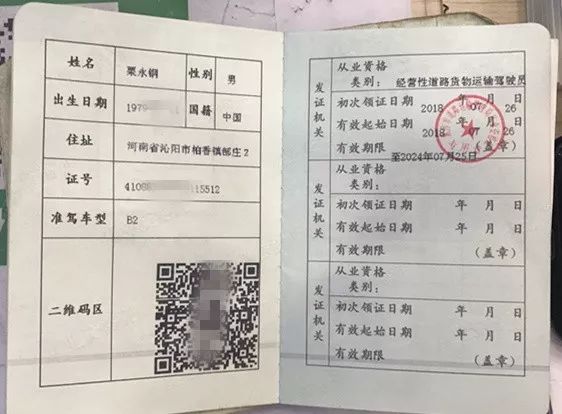 姓名 栗永钢 性别 男
出生日期 1979 国籍 中国
住址 河南省沁阳市柏香镇郜庄2
证号 4108 115512
准驾车型 B2
二维码区
发证机关
从业资格类别: 经营性道路货物运输驾驶员
初次领证日期 年 月 日
2018 07 26
有效起始日期 年 月 日
2018 07 26
有效期限 (盖章)
至2024年07月25日
发证机关
从业资格类别:
初次领证日期 年 月 日
有效起始日期 年 月 日
有效期限 (盖章)
发证机关
从业资格类别:
初次领证日期 年 月 日
有效起始日期 年 月 日
有效期限 (盖章)